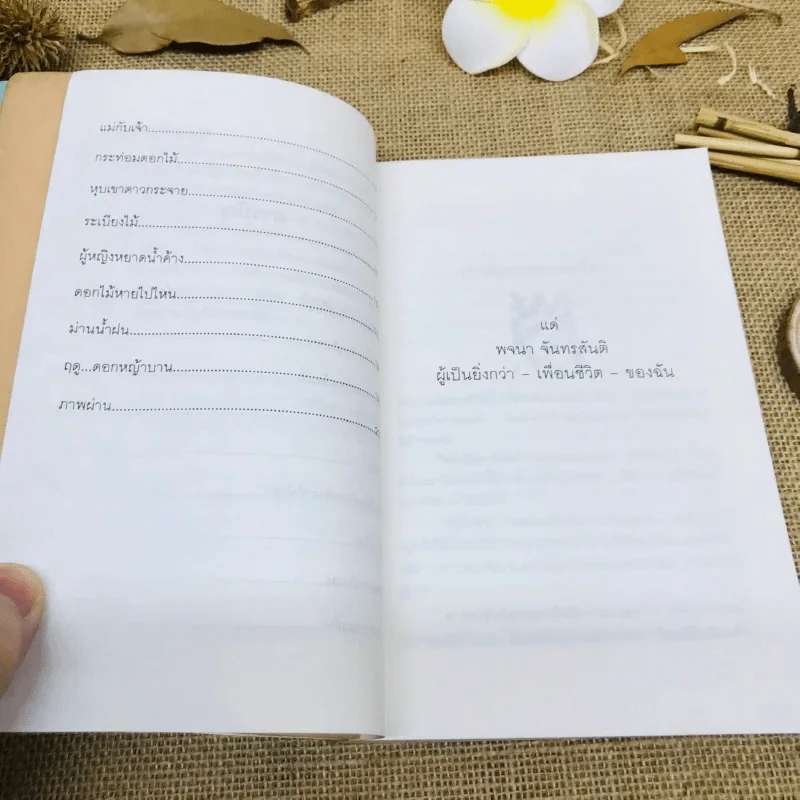 แม่กับเจ้า
กระท่อมดอกไม้
หุบเขาดาวกระจาย
ระเบียงไม้
ผู้หญิงหยาดน้ำค้าง
ดอกไม้หายไปไหน
ม่านน้ำฝน
ฤดู...ดอกหญ้าบาน
ภาพผ่าน
แด่
พจนา จันทรสันติ
ผู้เป็นยิ่งกว่า – เพื่อนชีวิต – ของฉัน